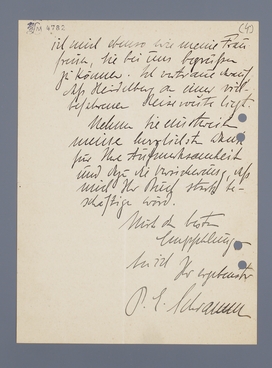 M 4782
(4)
ich mich ebenso wie meine Frau
freuen, Sie bei uns begrüßen
zu können. Ich vertraue darauf,
daß Heidelberg an einer viel-
befahrenen Reiseroute liegt.
Nehmen Sie einstweilen
meine herzlichsten Dank
für Ihre Aufmerksamkeit
und die Versicherung, daß
mich Ihr Buch stark be-
schäftigen wird.
Mit den besten
Empfehlungen
bin ich Ihr ergebenster
P. E. Schramm